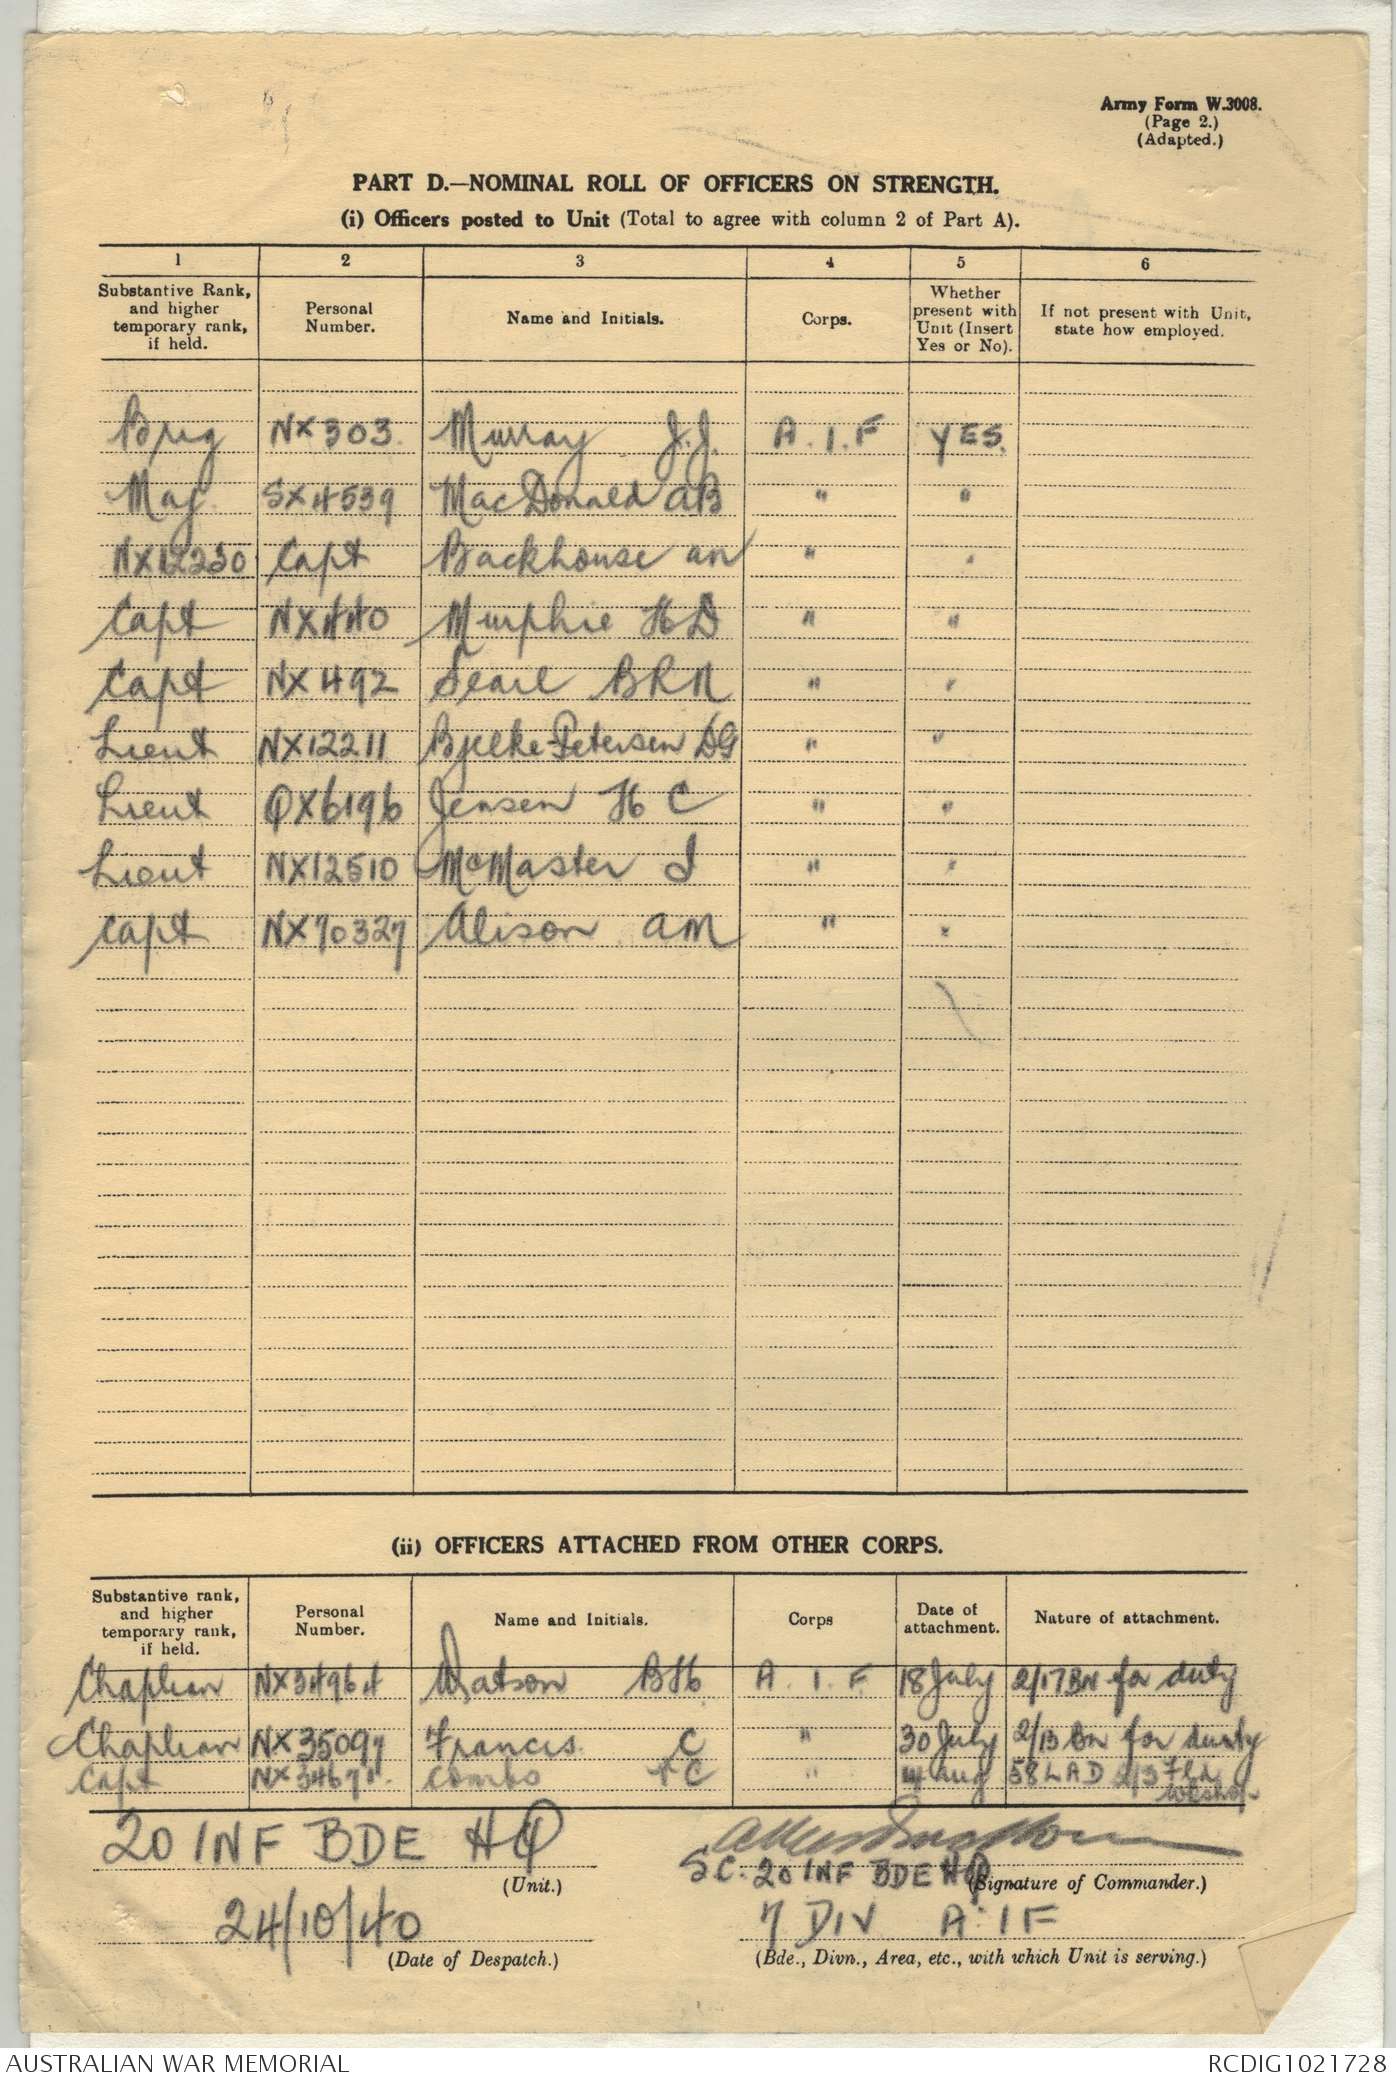 Army Form W.3008.
(Page 2.)
(Adapted.)
PART D.—NOMINAL ROLL OF OFFICERS ON STRENGTH.
(i) Officers posted to Unit (Total to agree with column 2 of Part A).
1 2 3 4 5 6
Substantive Rank, and higher temporary rank, if held. Personal Number. Name and Initials. Corps. Whether present with Unit (Insert Yes or No). If not present with Unit, state how employed.
Brig NX303. Murray J.J. A.I.F YES.
Maj. SX4539 MacDonald AB " "
NX12230 Capt Backhouse AN " "
Capt NX440 Murphie HD " "
Capt NX492 Searl BRN " "
Lieut NX12211 Bjelke-Petersen DG " "
Lieut QX6196 Jensen H C " "
Lieut NX12510 McMaster I " "
Capt NX70327 Alison AM " "
(ii) OFFICERS ATTACHED FROM OTHER CORPS.
Substantive rank, and higher temporary rank, if held. Personal Number. Name and Initials. Corps Date of attachment. Nature of attachment.
Chaplian NX34964 Watson BH. A.I.F. 18 July 2/17 BN for duty
Chaplian NX35097 Francis. C " 30 July 2/13 Bn for duty
Capt Combo C " Aug 58 LAD 2/3 Fld Wkshop
20 INF BDE HQ
(Unit.)
S.C. 20 INF BDE HQ
(Signature of Commander.)
24/10/40
(Date of Despatch.)
7 DIV A.I F
(Bde., Divn., Area, etc., with which Unit is serving.)
AUSTRALIAN WAR MEMORIAL RCDIG1021728